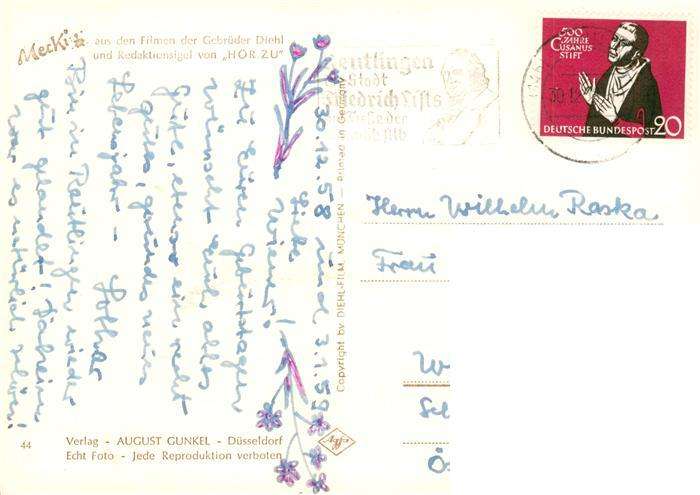 Mecki aus den Filmen der Gebrüder Diehl
und Redaktionsigel von „HÖR ZU"
30.12.58 und 3.1.59
Liebe
Wiener!
Zu Euren Geburtstagen
wünscht Euch alles
Gute, ebenso ein recht
gutes, gesundes neues
Lebensjahr -
Lothar
Bin in Reutlingen wieder
gut gelandet! Daheim
war es natürlich schön!
Copyright by DIEHL-FILM, MÜNCHEN — Printed in Germany
Reutlingen
Stadt
Friedrich Lists
500
JAHRE
CUSANUS
STIFT
DEUTSCHE BUNDESPOST 20
Herrn Wilhelm Raska
Frau
W
Ö
44
Verlag - AUGUST GUNKEL - Düsseldorf
Echt Foto - Jede Reproduktion verboten
Agfa